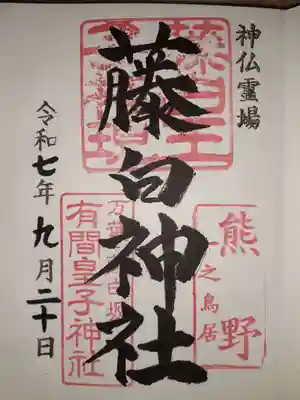 神仏霊場
藤白神社
熊野
一之鳥居
有間皇子神社
令和七年九月二十日